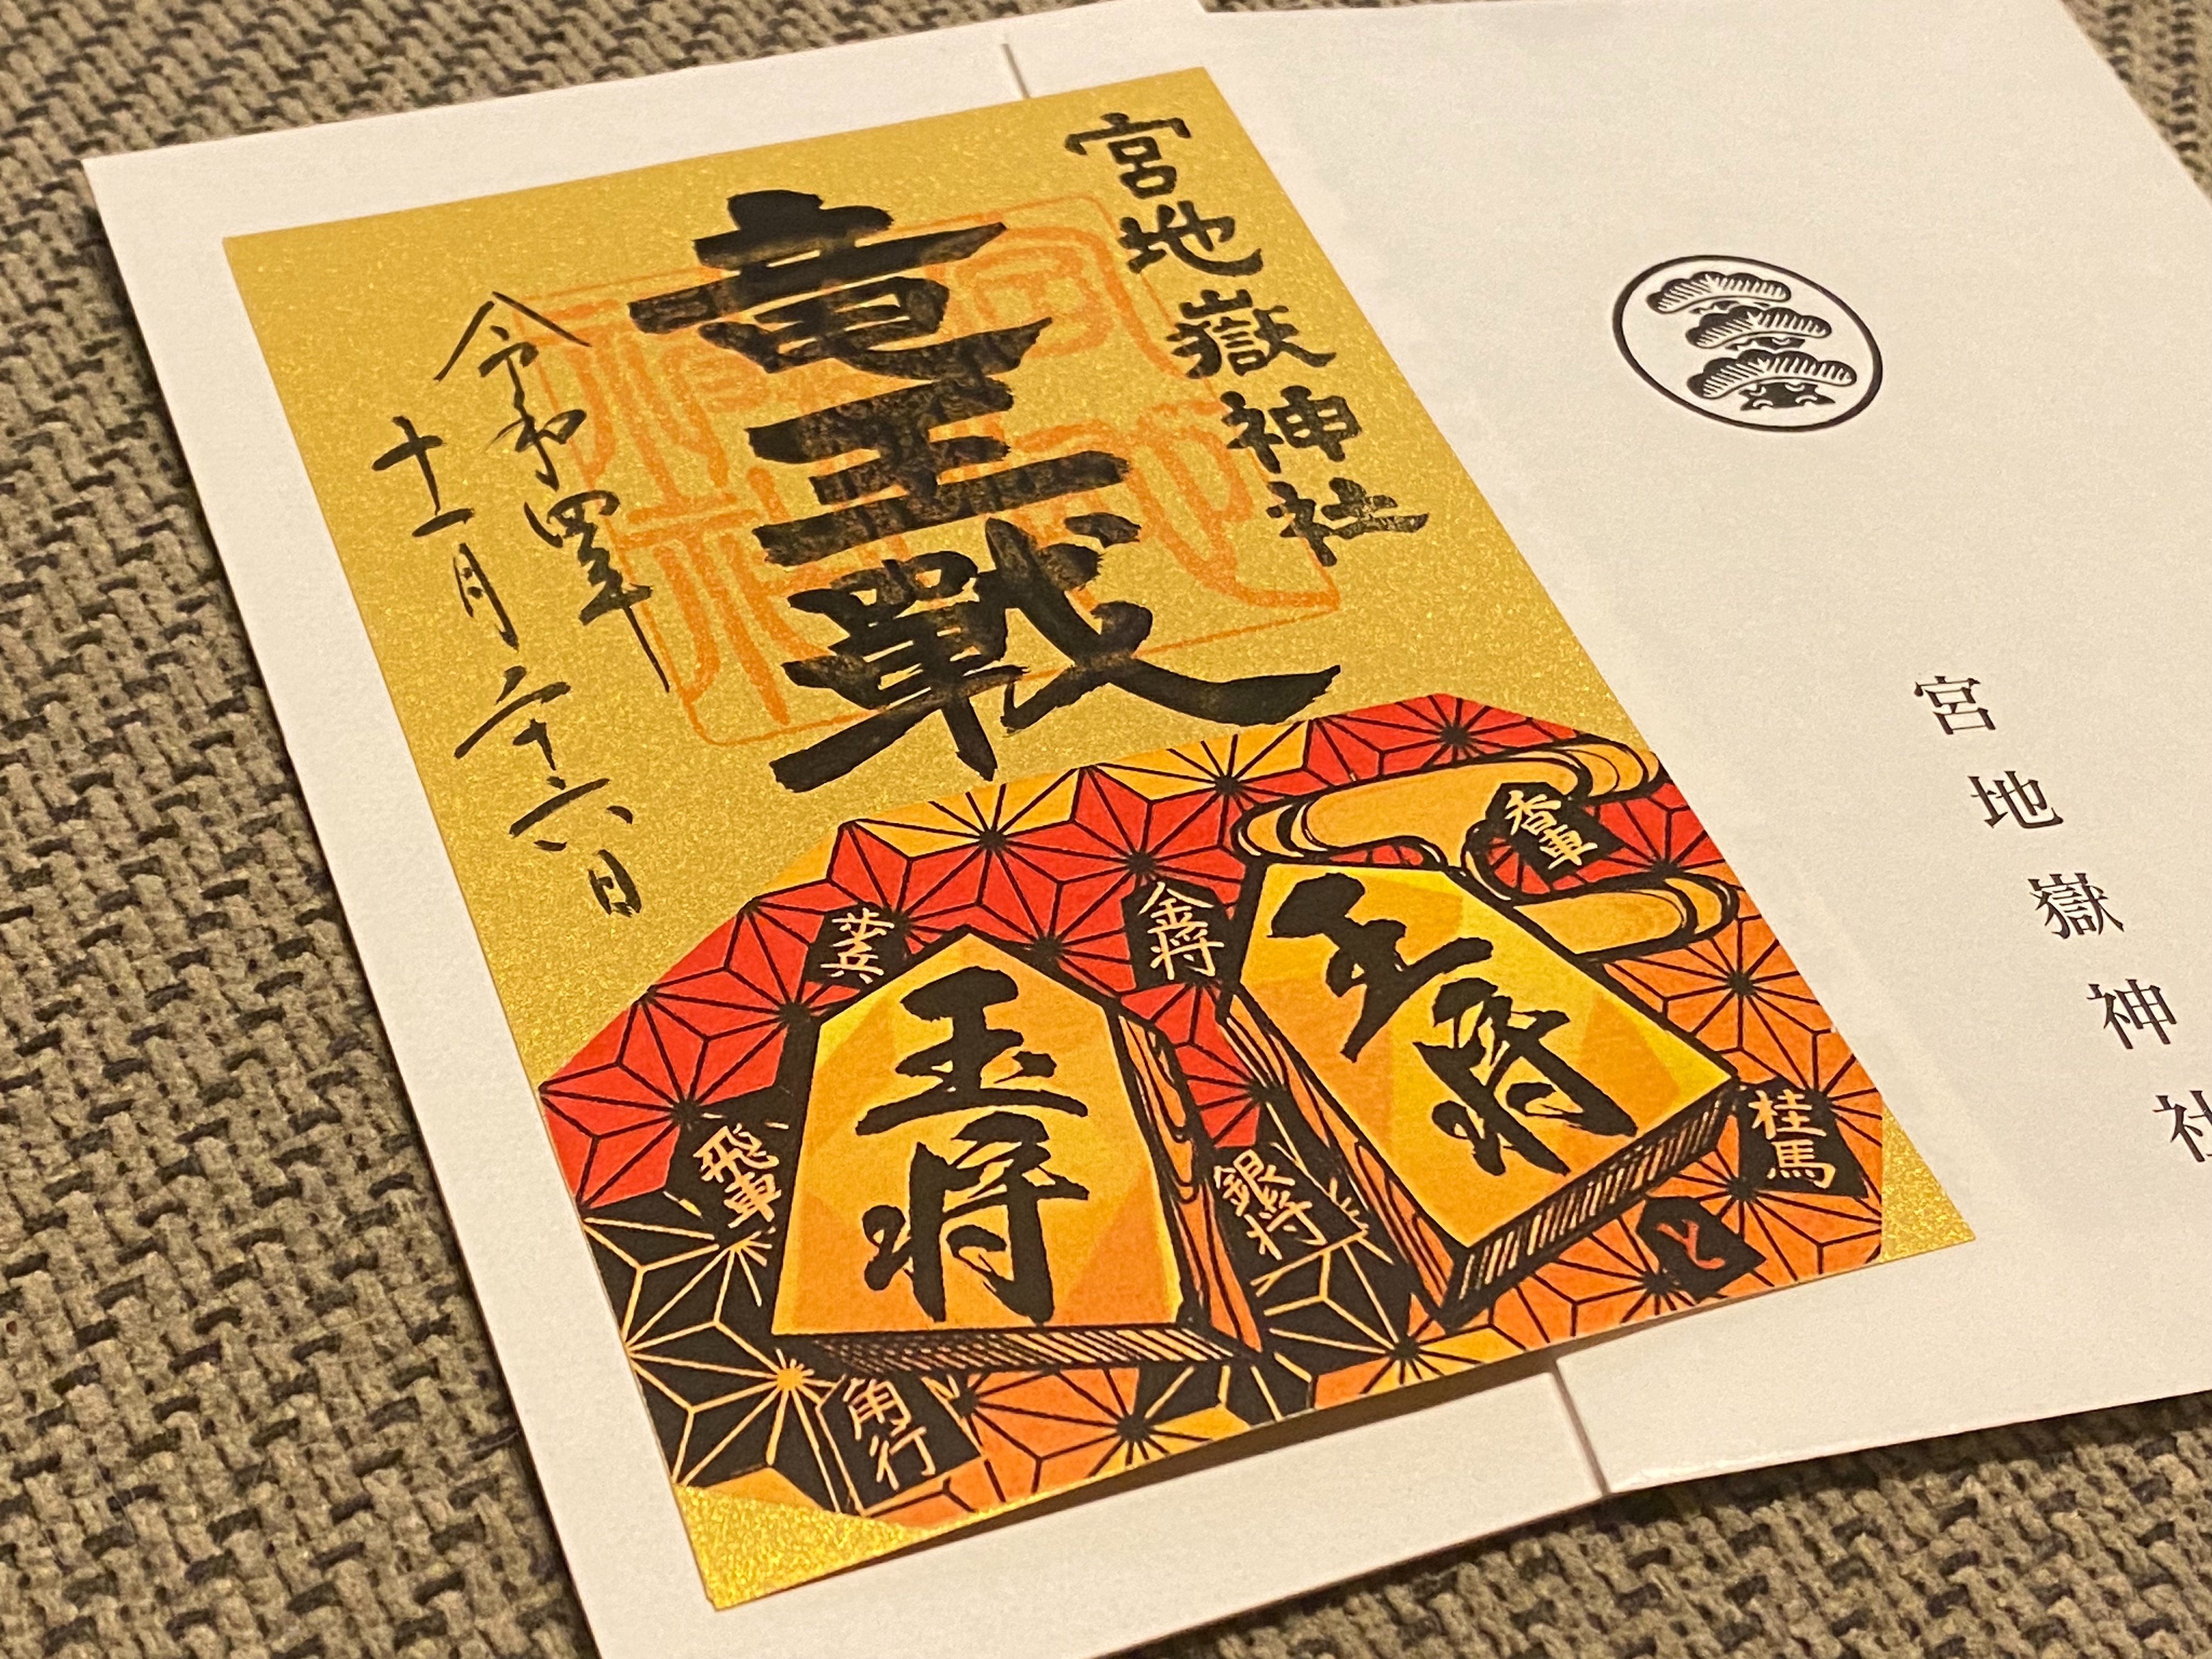 宮地嶽神社
竜王戦
令和四年
十一月二十六日
香車
金将
歩兵
王将
玉将
桂馬
銀将
飛車
と
角行
宮地嶽神社